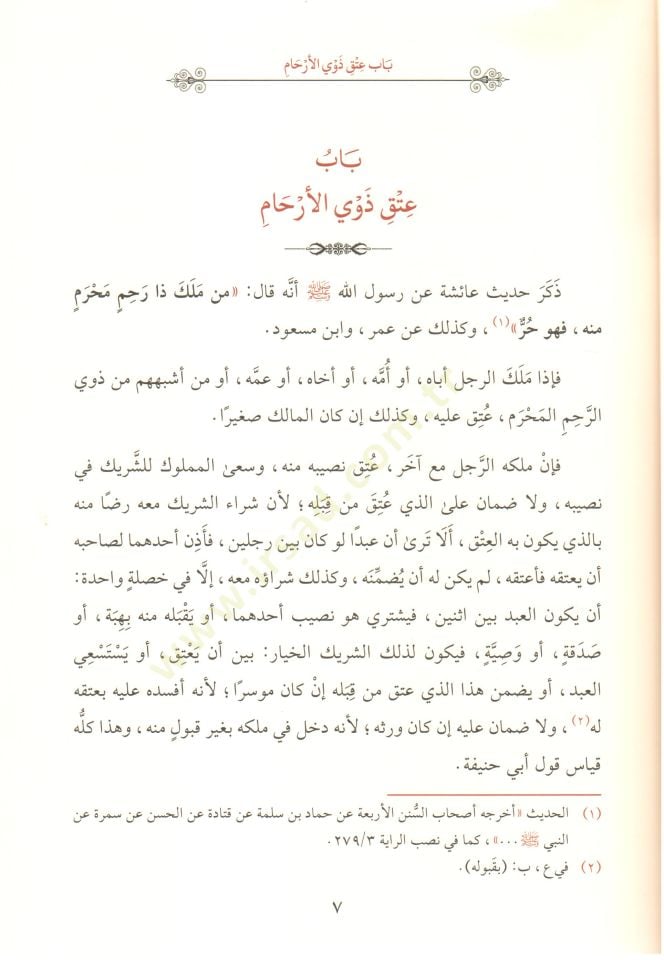 بَاب عِتْقِ ذَوْي الأرْحَامِ
بَابُ
عِتْقِ ذَوْي الأرْحَامِ
ذَكَرَ حديث عائشة عن رسول الله ﷺ أنَّه قال: «من مَلَكَ ذا رَحِمٍ مَحْرَمٍ
منه، فهو حُرٌّ»(١)، وكذلك عن عمر، وابن مسعود.
فإذا مَلَكَ الرجل أباه، أو أُمَّه، أو أخاه، أو عمَّه، أو من أشبههم من ذوي
الرَّحِمِ المَحْرَم، عُتِق عليه، وكذلك إن كان المالك صغيرًا.
فإنْ ملكه الرَّجل مع آخَر، عُتِق نصيبه منه، وسعىٰ المملوك للشَّريك في
نصيبه، ولا ضمان علىٰ الذي عُتِقَ من قِبَلِه؛ لأن شراء الشريك معه رضًا منه
بالذي يكون به العِتْق، أَلَا تَرىٰ أن عبدًا لو كان بين رجلين، فأَذِن أحدهما لصاحبه
أن يعتقه فأعتقه، لم يكن له أن يُضمِّنَه، وكذلك شراؤه معه، إلَّا في خصلةٍ واحدة:
أن يكون العبد بين اثنين، فيشتري هو نصيب أحدهما، أو يَقْبَله منه بِهِبَة، أو
صَدَقةٍ، أو وَصِيَّةٍ، فيكون لذلك الشريك الخيار: بين أن يَعْتِق، أو يَسْتَسْعِي
العبد، أو يضمن هذا الذي عتق من قِبَله إنْ كان موسرًا؛ لأنه أفسده عليه بعتقه
له(٢)، ولا ضمان عليه إن كان ورثه؛ لأنه دخل في ملكه بغير قبولٍ منه، وهذا كلُّه
قياس قول أبي حنيفة.
(١) الحديث «أخرجه أصحاب السُّنن الأربعة عن حماد بن سلمة عن قتادة عن الحسن عن سمرة عن
النبي ﷺ ...»، كما في نصب الراية ٢٧٩/٣.
(٢) في ع، ب: (بقَبوله).
٧
www.irsad.com.tr